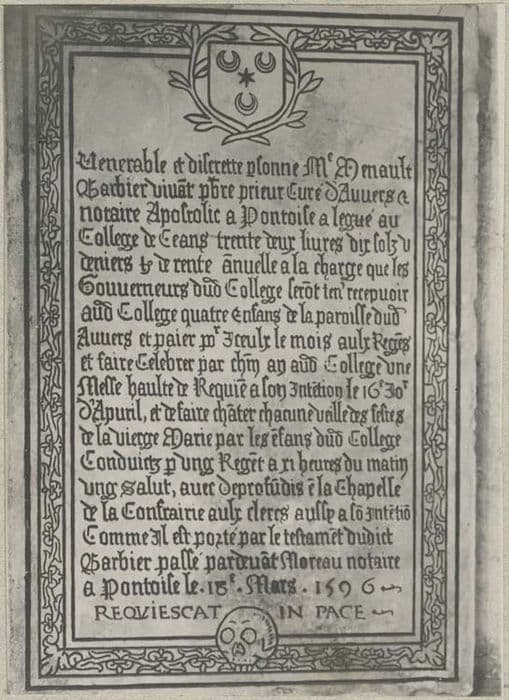 Venerable et discrette psonne Mᵉ Menault
Barbier vivāt pb̄re prieur Curé d'Auvers &
notaire Apostolic a Pontoise a legué au
College de Ceans trente deux livres dix solz v
deniers tz de rente āñuelle a la charge que les
Gouverneurs dud College serōt ten' recepvoir
aud College quatre Enfans de la paroisse dud
Auvers et paier pr Iceulx le mois aulx Regēs
et faire Celebrer par chūn an aud College vne
Messe haulte de Requiē a son Intētion le 16ᵉ Joʳ
d'Apuril, et de faire chāter chacune veille des festes
de la vierge Marie par les ēfans dud College
Conduictz p vng Regēt a xi heures du matin
vng Salut, avec Deprofūdis ē la Chapelle
de la Confrairie aulx clercs aussy a sō Intētiō
Comme Il est porté par le testamēt dudict
Barbier passé pardevāt Moreau notaire
a Pontoise le . 18ᵉ . Mars . 1596
REQVIESCAT IN PACE